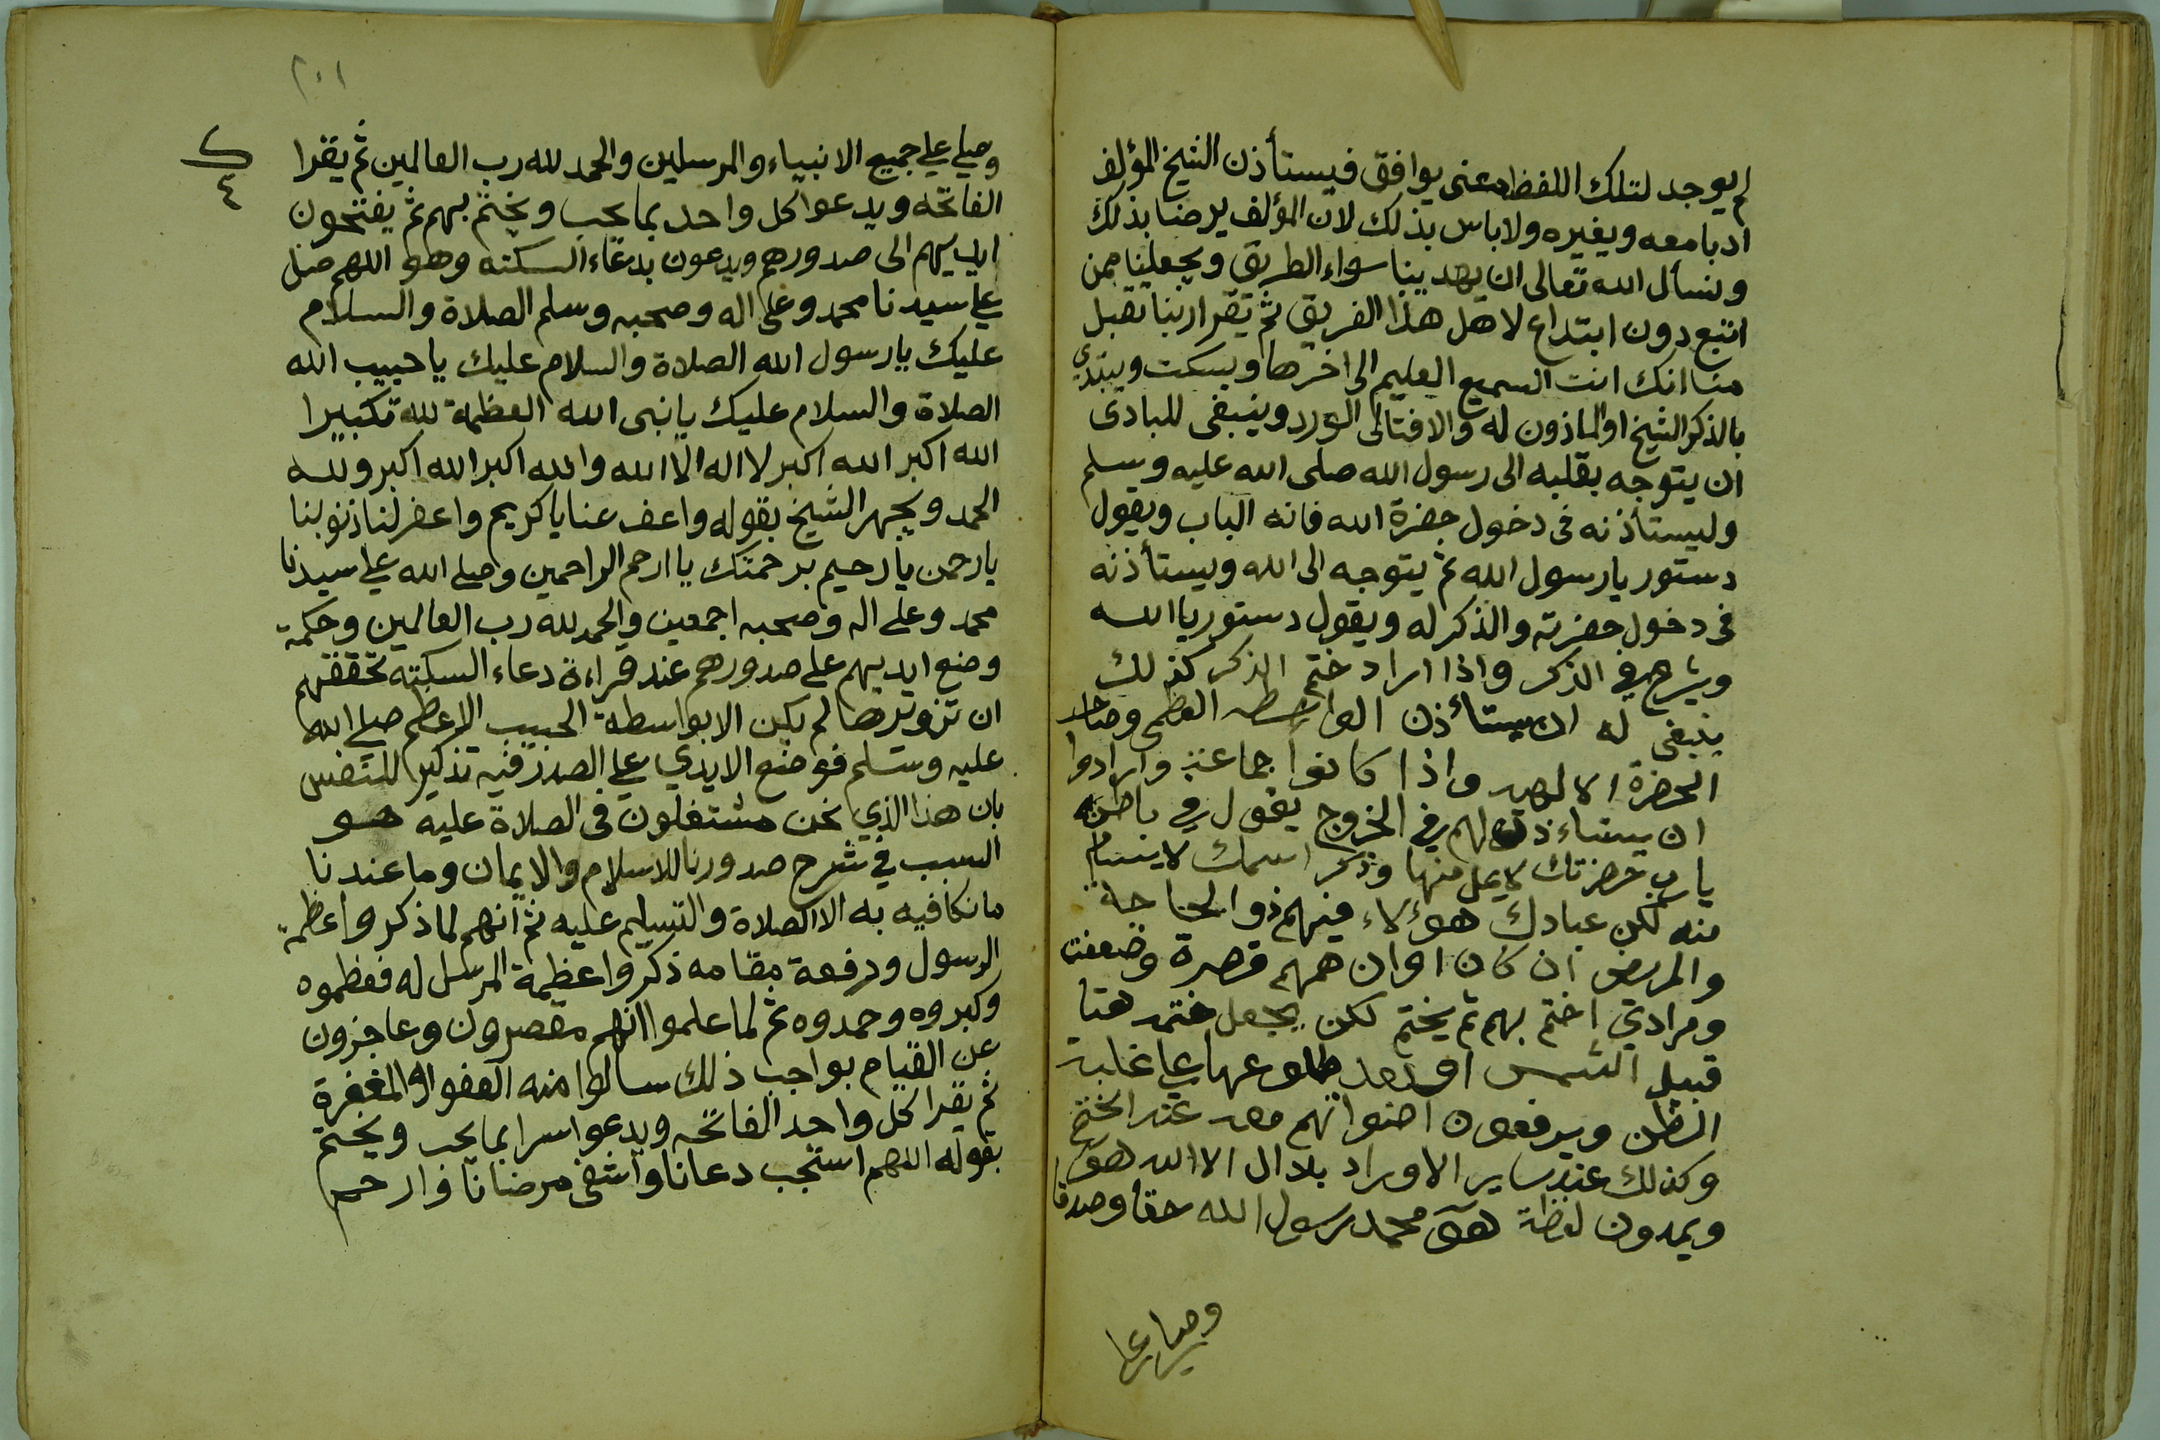 لم يوجد لتلك اللفظ معنى يوافق فيستأذن الشيخ المؤلف
ادبا معه ويغيره ولا باس بذلك لان المؤلف يرضا بذلك
ونسأل الله تعالى ان يهدينا سواء الطريق ويجعلنا ممن
اتبع دون ابتداع لاهل هذا الفريق ثم يقرا ربنا تقبل
منا انك انت السميع العليم الى اخرها ويسكت ويبتدي
بالذكر الشيخ او الماذون له والا فتالى الورد وينبغى للبادى
ان يتوجه بقلبه الى رسول الله صلى الله عليه وسلم
وليستأذنه فى دخول حضرة الله فانه الباب ويقول
دستور يا رسول الله ثم يتوجه الى الله ويستأذنه
فى دخول حضرته والذكر له ويقول دستور يا الله
ويشرع في الذكر واذا اراد ختم الذكر كذلك
ينبغى له ان يستأذن الواسطه العظمى وصاحب
الحضرة الالهيه واذا كانوا جماعة وارادوا
ان يستاءذن لهم في الخروج يقول في باطنه
يا رب حضرتك لا يمل منها وذكر اسمك لا يسام
منه لكن عبادك هؤلاء فيهم ذو الحاجة
والمريض ان كان او ان هممهم قصرة وضعفت
ومرادي اختم بهم ثم يختم لكن يجعل ختمه هنا
قبيل الشمس او بعد طلوعها على غلبة
الظن ويرفعون اصواتهم معه عند الختم
وكذلك عند ساير الاوراد بلا اله الا الله هو
ويمدون لفظة هو محمد رسول الله حقا وصدقا
وصلى على
٢٠١
ك
٤
وصلى على جميع الانبياء والمرسلين والحمد لله رب العالمين ثم يقرا
الفاتحه ويدعوا كل واحد بما يحب ويختم بهم ثم يفتحون
ايديهم الى صدورهم ويدعون بدعاء السكته وهو اللهم صل
على سيدنا محمد وعلى اله وصحبه وسلم الصلاة والسلام
عليك يا رسول الله الصلاة والسلام عليك يا حبيب الله
الصلاة والسلام عليك يا نبى الله العظمة لله تكبيرا
الله اكبر الله اكبر لا اله الا الله والله اكبر الله اكبر ولله
الحمد ويجهر الشيخ بقوله واعف عنا يا كريم واغفر لنا ذنوبنا
يا رحمن يا رحيم برحمتك يا ارحم الراحمين وصلى الله على سيدنا
محمد وعلى اله وصحبه اجمعين والحمد لله رب العالمين وحكمة
وضع ايديهم على صدورهم عند قراءة دعاء السكته تحققهم
ان لم يكن الا بواسطة الحبيب الاعظم صلى الله
عليه وسلم فوضع الايدي على الصدر فيه تذكير للنفس
بان هذا الذي نحن مشتغلون فى الصلاة عليه هو
السبب في شرح صدورنا للاسلام والايمان وما عندنا
ما نكافيه به الا الصلاة والتسليم عليه ثم انهم لما ذكروا عظمة
الرسول ورفعة مقامه ذكروا عظمة المرسل له فعظموه
وكبروه وحمدوه ثم لما علموا انهم مقصرون وعاجزون
عن القيام بواجب ذلك سالوا منه العفو والمغفرة
ثم يقرا كل واحد الفاتحه ويدعوا سرا بما يحب ويختم
بقوله اللهم استجب دعانا واشفى مرضانا وارحم